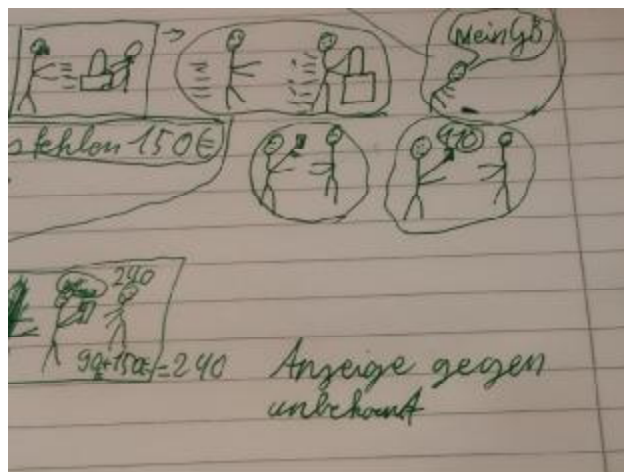 Mein GB
stehlen 150€
110
240
90+150€=240
Anzeige gegen
unbekannt